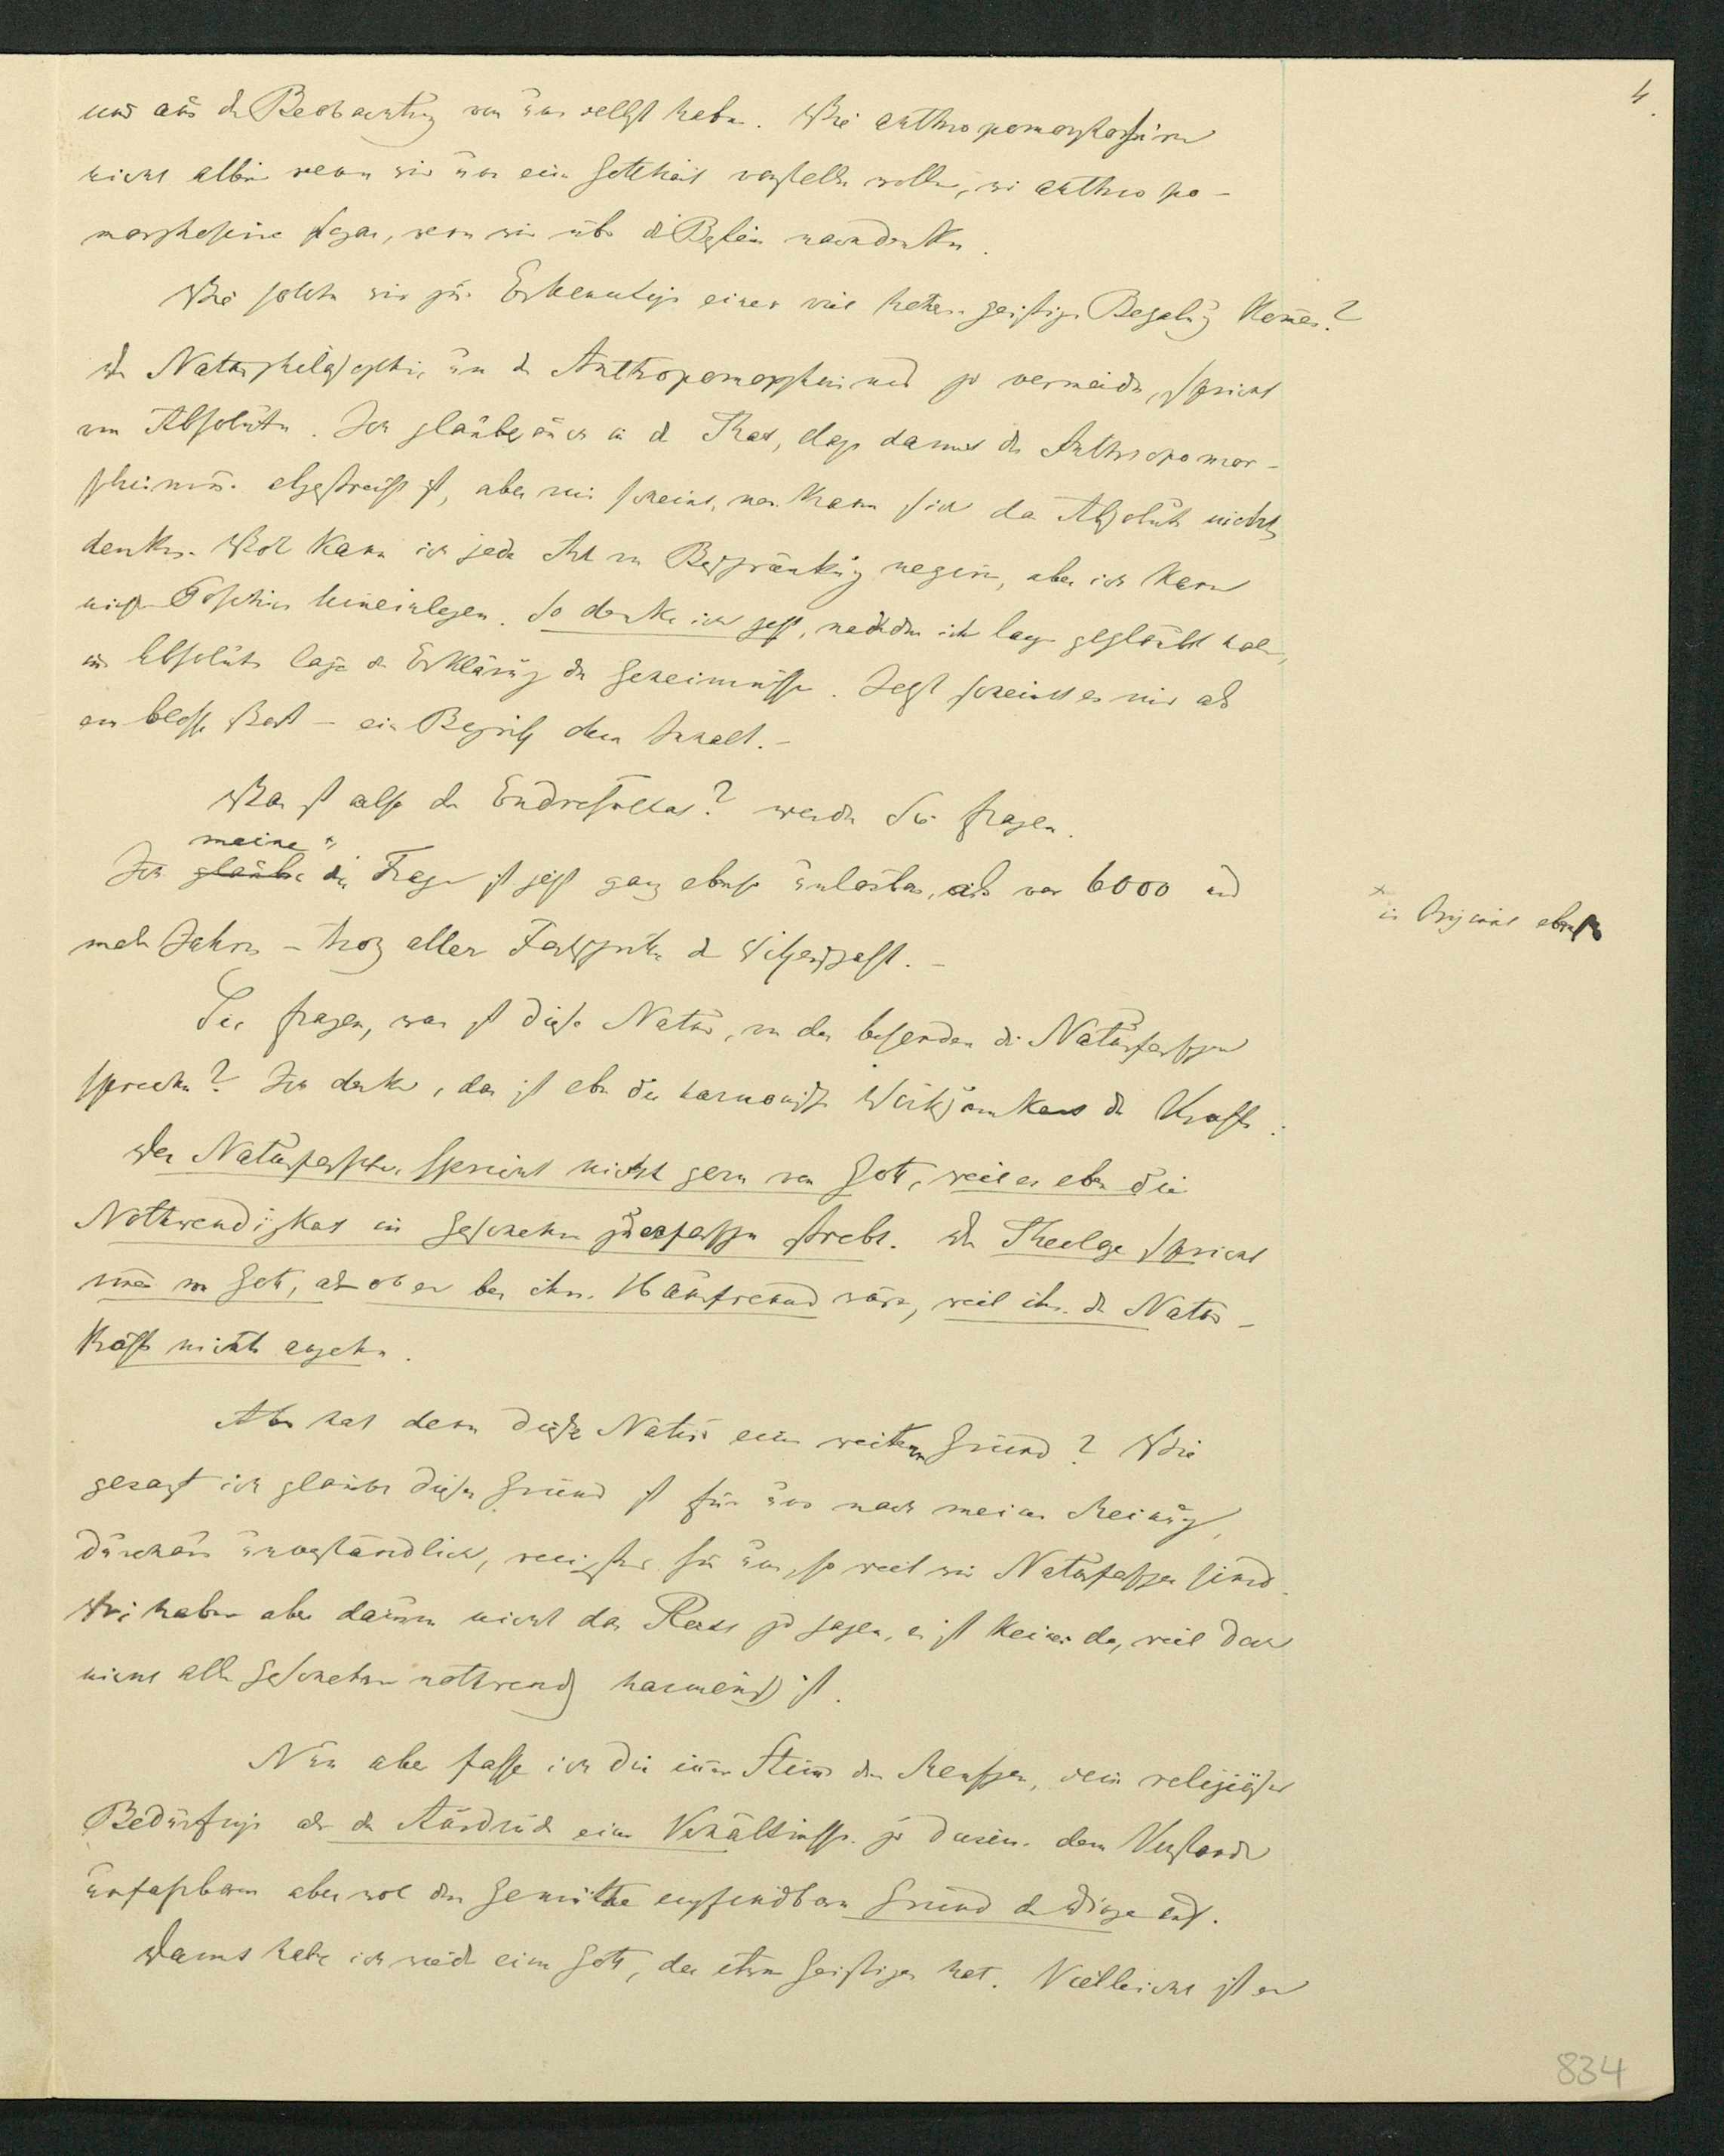 4.
und aus der Beobachtung von uns selbst haben. Wir anthropomorphosiren
nicht allein wenn wir uns eine Gottheit vorstellen wollen, wir anthropo-
morphosiren sogar, wenn wir über die Bestien nachdenken.
Wie sollten wir zur Erkenntniss einer viel höhern geistigen Begabung kom̄en?
Die Naturphilosophie, um den Anthropomorphismus zu vermeiden, spricht
vom Absoluten. Ich glaube auch in der That, dass damit der Anthropomor-
phismus abgestreift ist, aber mir scheint, man kann sich das Absolute nicht
denken. Wol kann ich jede Art von Beschränkung negiren, aber ich kann
nichts Positives hineinlegen. So denke ich jetzt, nachdem ich lange geglaubt habe,
im Absoluten läge die Erklärung der Geheimnisse. Jetzt scheint es mir als
ein blosses Wort – ein Begriff ohne Inhalt. –
Was ist also das Endresultat? werden Sie fragen.
meine x
Ich glaube die Frage ist jetzt ganz ebenso unlösbar, als vor 6000 und
mehr Jahren – trotz aller Fortschritte der Wissenschaft. –
x in Original ebenso
Sie fragen, was ist diese Natur, von der besonders die Naturforscher
sprechen? Ich denke, das ist eben die harmonische Wirksamkeit der Kräfte.
Der Naturforscher spricht nicht gern von Gott, weil er eben die
Nothwendigkeit im Geschehen zu erfassen strebt. Der Theologe spricht
im̄er von Gott, als ob er bei ihm Hausfreund wäre, weil ihn die Natur-
kräfte nichts angehn.
Aber hat denn diese Natur einen weiteren Grund? Wie
gesagt ich glaube dieser Grund ist für uns nach meiner Meinung,
durchaus unverständlich, wenigstens für uns, so weit wir Naturforscher sind.
Wir haben aber darum nicht das Recht zu sagen, es ist keiner da, weil doch
nicht alles Geschehen nothwendig harmonisch ist.
Nun aber fasse ich die innere Stimme des Menschen, sein religiöses
Bedürfniss als den Ausdruck eines Verhältnisses zu diesem dem Verstande
unfassbaren aber wol dem Gemüthe empfindbaren Grund der Dinge auf.
Damit habe ich wieder einen Gott, der etwas Geistiges hat. Vielleicht ist er
834